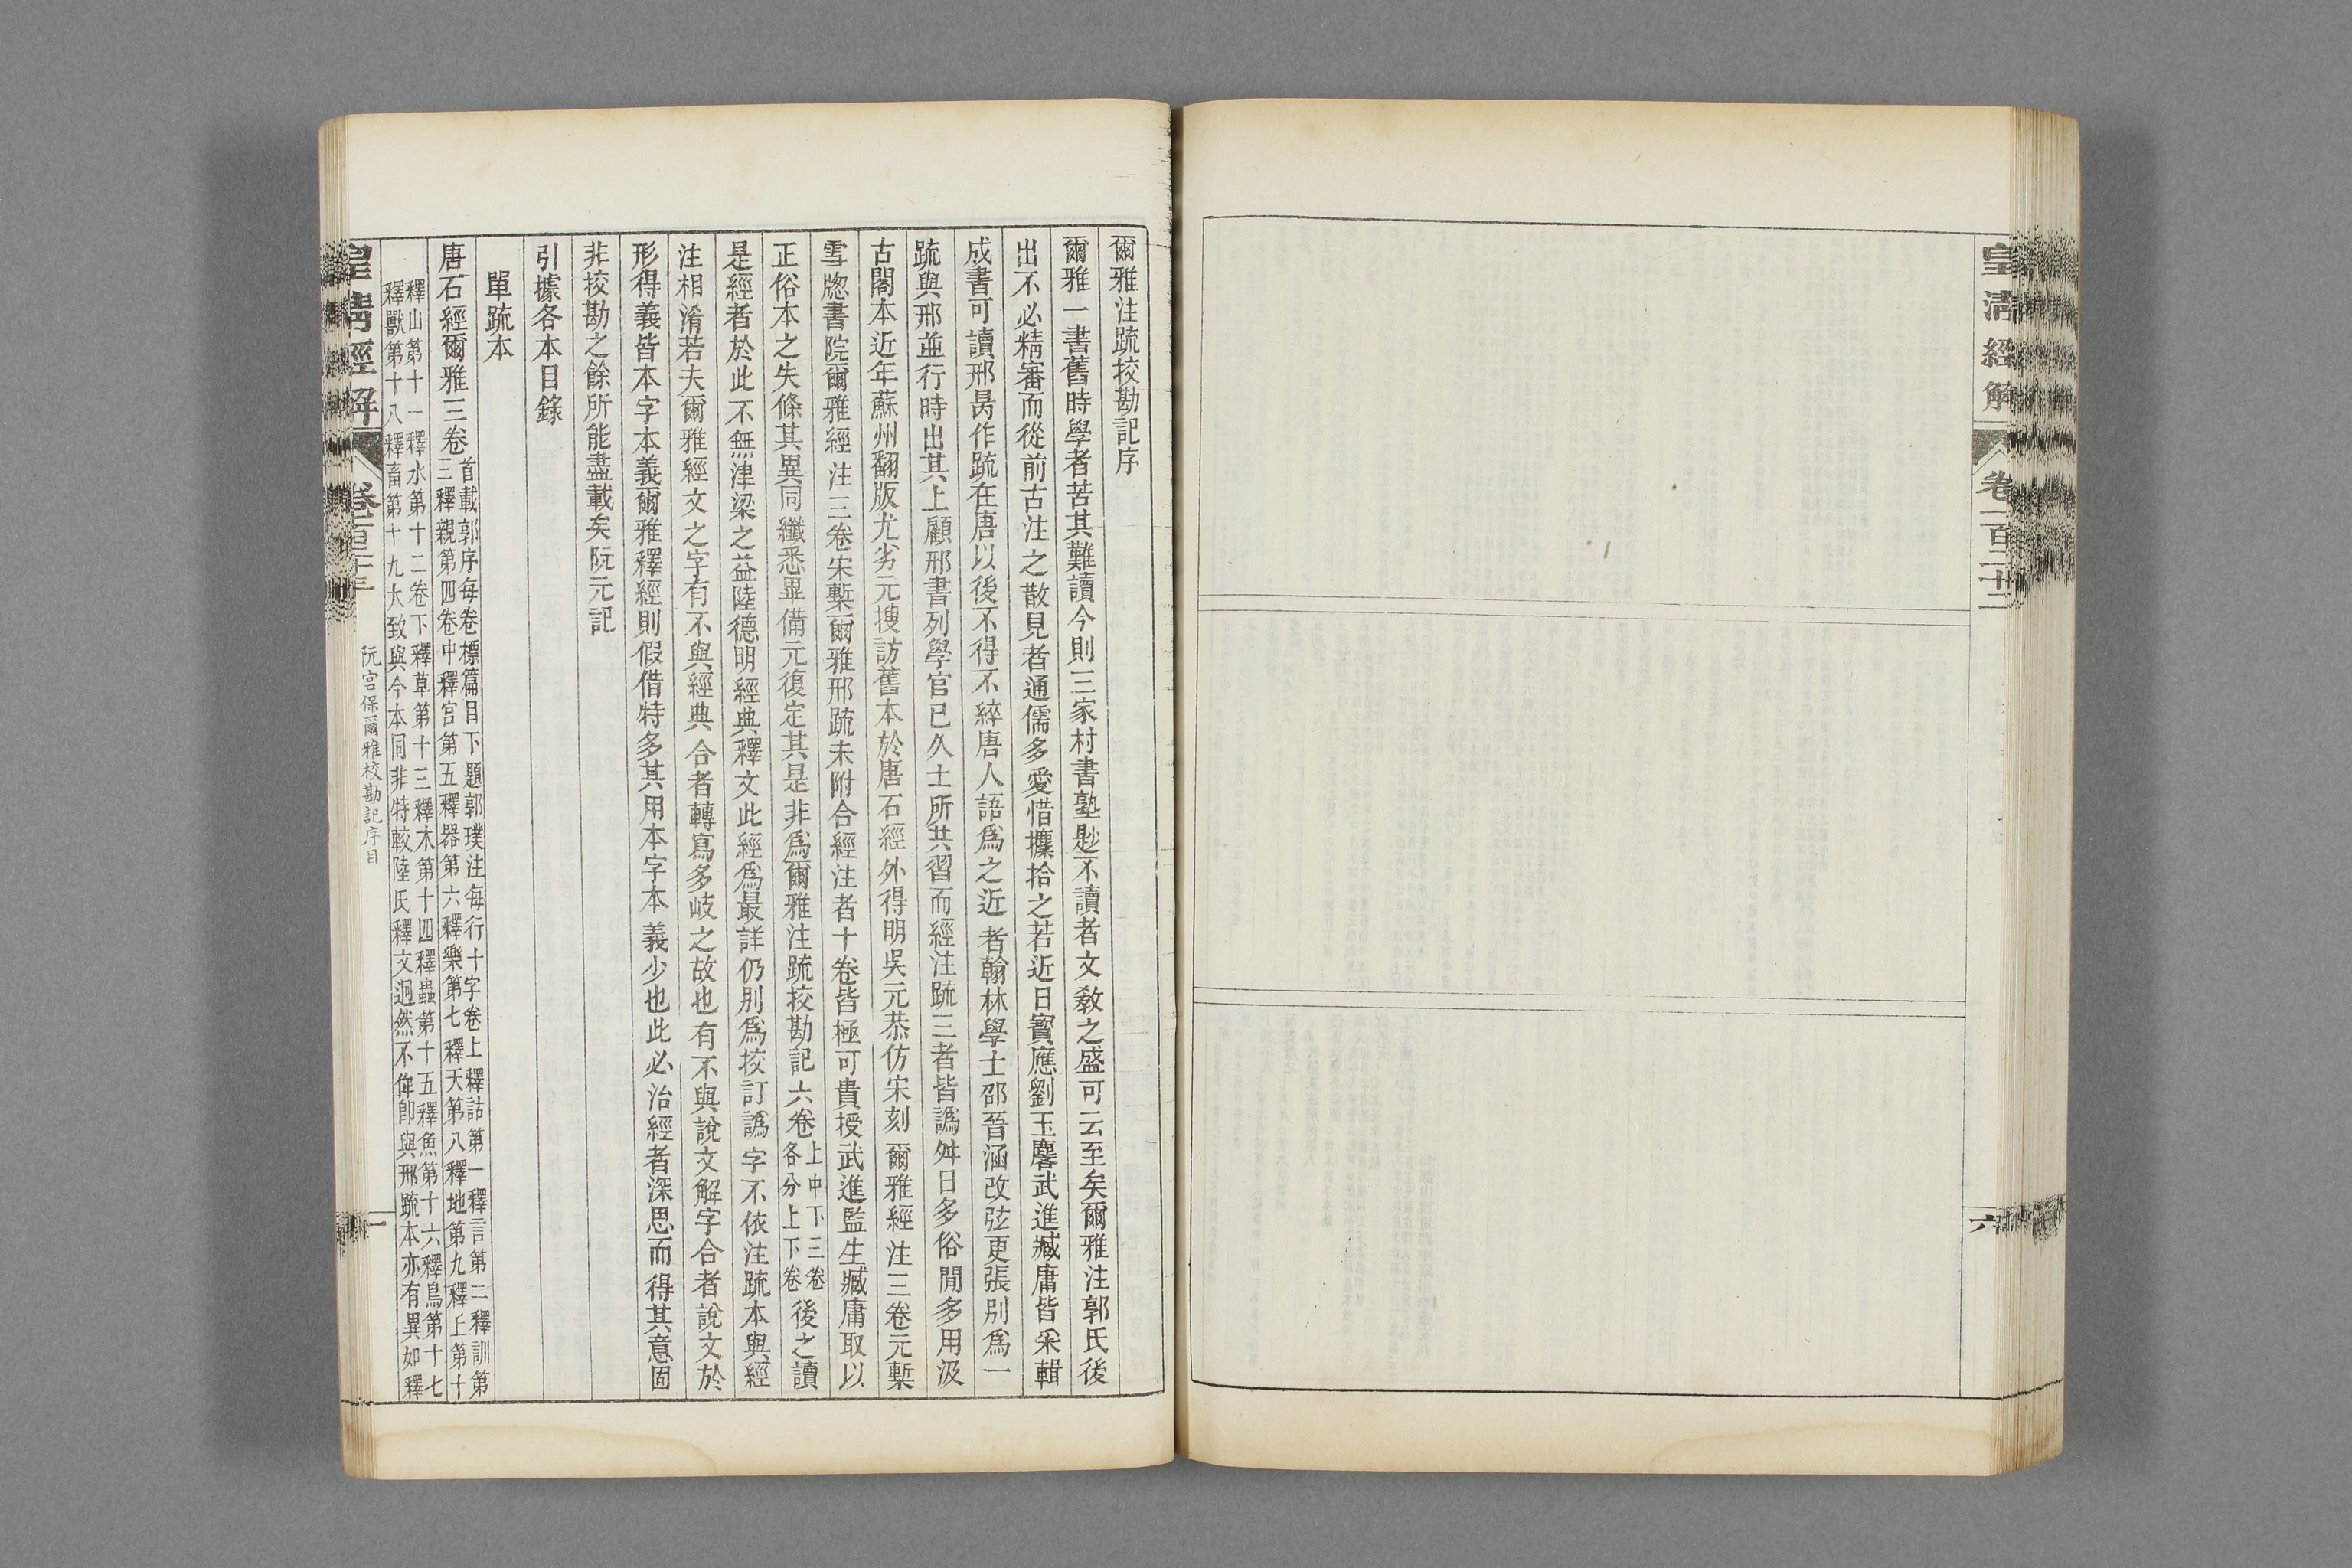 皇清經解
卷一百二十二
六
爾雅注疏挍勘記序
爾雅一書舊時學者苦其難讀今則三家村書塾尟不讀者文敎之盛可云至矣爾雅注郭氏後
出不必精審而從前古注之散見者通儒多愛惜攟拾之若近日寳應劉玉麐武進臧庸皆采輯
成書可讀邢昺作疏在唐以後不得不綷唐人語爲之近者翰林學士邵晉涵改弦更張別爲一
疏與邢並行時出其上顧邢書列學官已久士所共習而經注疏三者皆譌舛日多俗閒多用汲
古閣本近年蘇州翻版尤劣元搜訪舊本於唐石經外得明吳元恭仿宋刻爾雅經注三卷元槧
雪牕書院爾雅經注三卷宋槧爾雅邢疏未附合經注者十卷皆極可貴授武進監生臧庸取以
正俗本之失條其異同纖悉畢備元復定其是非爲爾雅注疏挍勘記六卷上中下三卷各分上下卷後之讀
是經者於此不無津梁之益陸德明經典釋文此經爲最詳仍別爲挍訂譌字不依注疏本與經
注相淆若夫爾雅經文之字有不與經典合者轉寫多岐之故也有不與說文解字合者說文於
形得義皆本字本義爾雅釋經則假借特多其用本字本義少也此必治經者深思而得其意固
非挍勘之餘所能盡載矣阮元記
引據各本目錄
單疏本
唐石經爾雅三卷
首載郭序每卷標篇目下題郭璞注每行十字卷上釋詁第一釋言第二釋訓第
三釋親第四卷中釋宮第五釋器第六釋樂第七釋天第八釋地第九釋上第十
釋山第十一釋水第十二卷下釋草第十三釋木第十四釋蟲第十五釋魚第十六釋鳥第十七
釋獸第十八釋畜第十九大致與今本同非特較陸氏釋文迥然不侔卽與邢疏本亦有異如釋
皇清經解
阮宮保爾雅校勘記序目
一